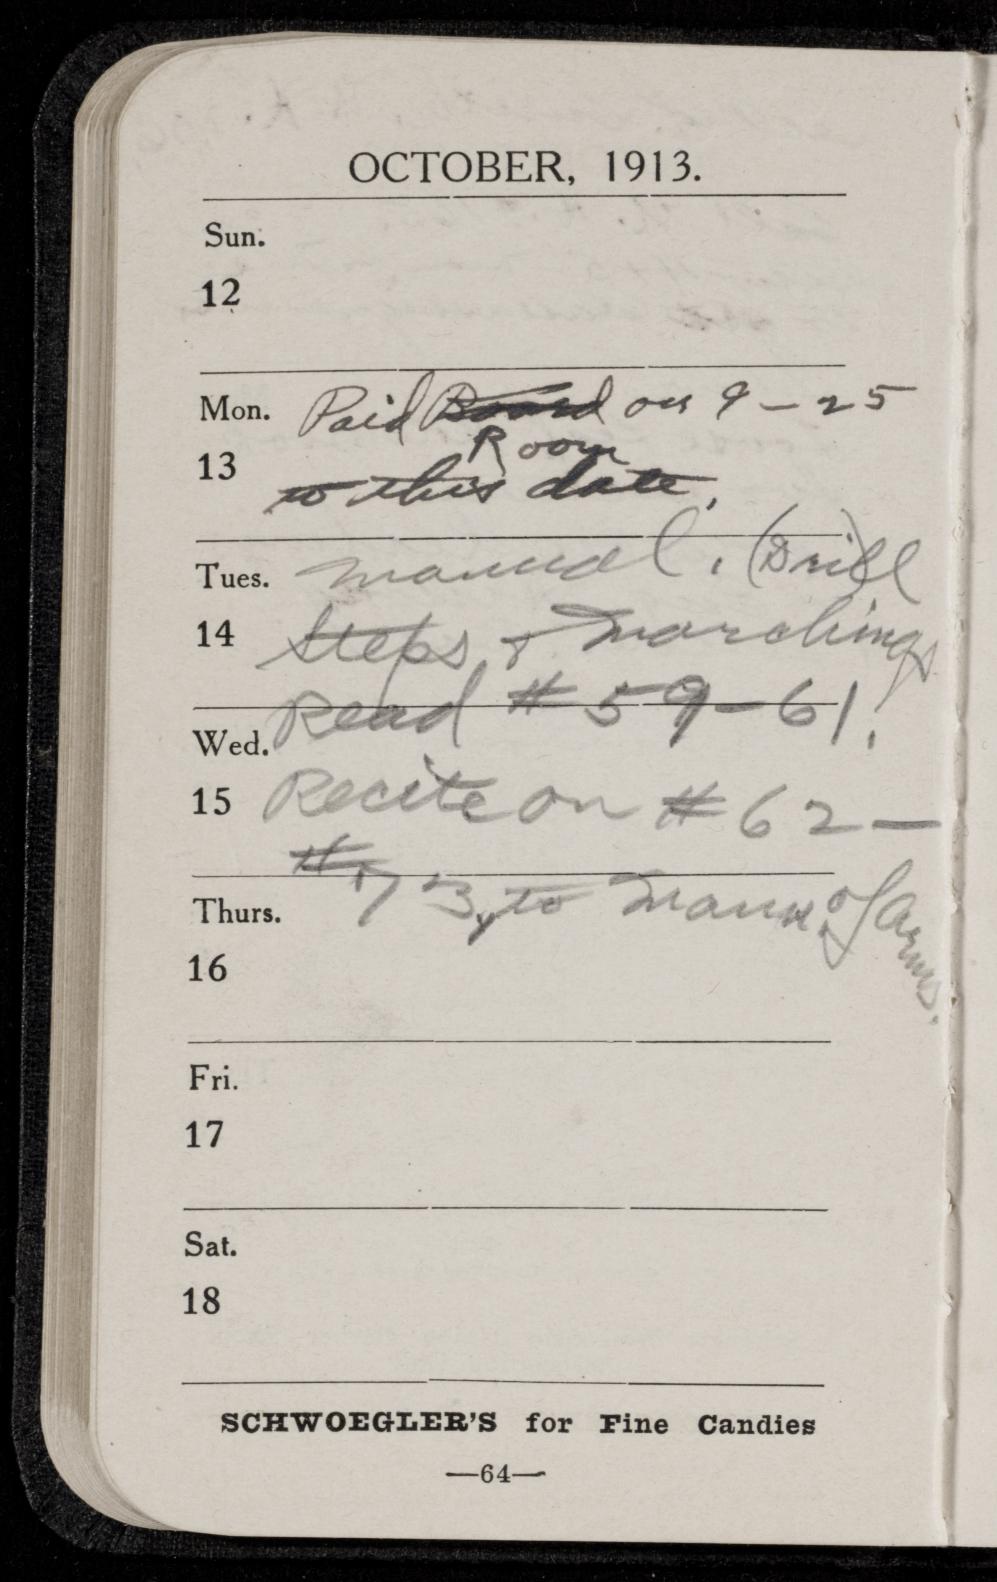 OCTOBER, 1913.
Sun.
12
Mon. Paid Board on 9-25
Room
13
to this date.
Tues. Manual. (Drill
14 Steps & Marchings
Read # 59-61.
Wed.
15 Recite on # 62-
#73, to Manu. of Arms.
Thurs.
16
Fri.
17
Sat.
18
SCHWOEGLER'S for Fine Candies
—64—